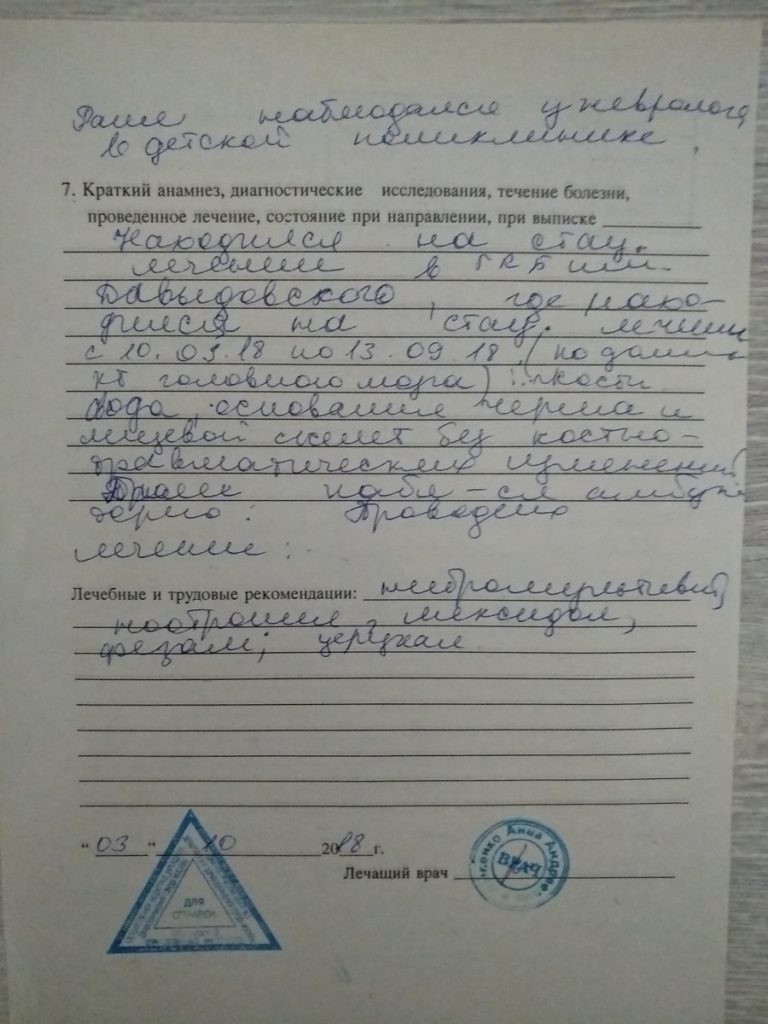 Ранее наблюдался у невролога
в детской поликлинике.
7. Краткий анамнез, диагностические исследования, течение болезни,
проведенное лечение, состояние при направлении, при выписке
Находился на стац.
лечении в ГКБ им.
Давыдовского, где нахо-
дился на стац. лечении
с 10.09.18 по 13.09.18 (по данным
КТ головного мозга) : кости
свода, основания черепа и
лицевой скелет без костно-
травматических изменений
Далее набл-ся амбула
торно. Проведено
лечение:
Лечебные и трудовые рекомендации:
мексидол,
фезам, цераксон
"03" 10 2018 г.
Лечащий врач
ВРАЧ
Анна Андрее
ДЛЯ
СПРАВОК